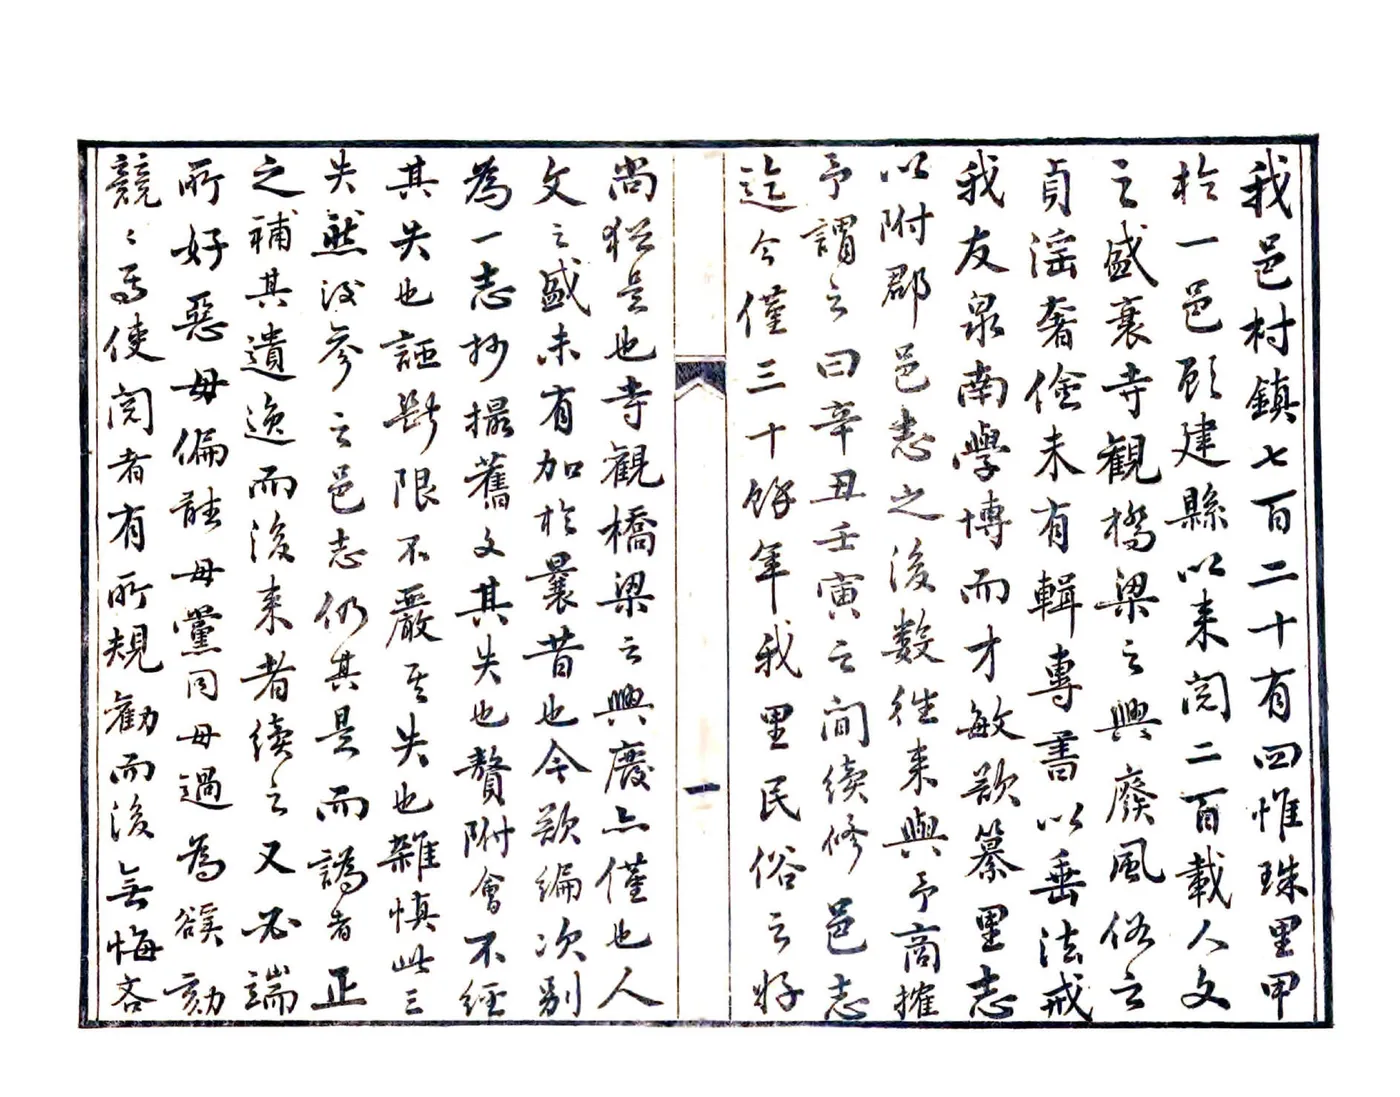 我邑村鎮七百二十有四惟珠里甲
於一邑顧建縣以來閱二百載人文
之盛衰寺觀橋梁之興廢風俗之
貞淫奢儉未有輯專書以垂法戒
我友泉南學博而才敏欲纂里志
以附郡邑志之後數往來與予商搉
予謂之曰辛丑壬寅之間續修邑志
迄今僅三十餘年我里民俗之好
一
尚猶是也寺觀橋梁之興廢亦僅也人
文之盛未有加於曩昔也今欲編次別
為一志抄撮舊文其失也贅附會不經
其失也誣斷限不嚴其失也雜慎此三
失然後參之邑志仍其是而譌者正
之補其遺逸而後來者續之又必端
所好惡毋偏詖毋黨同毋過為谿刻
競〻焉使閱者有所規勸而後無悔吝